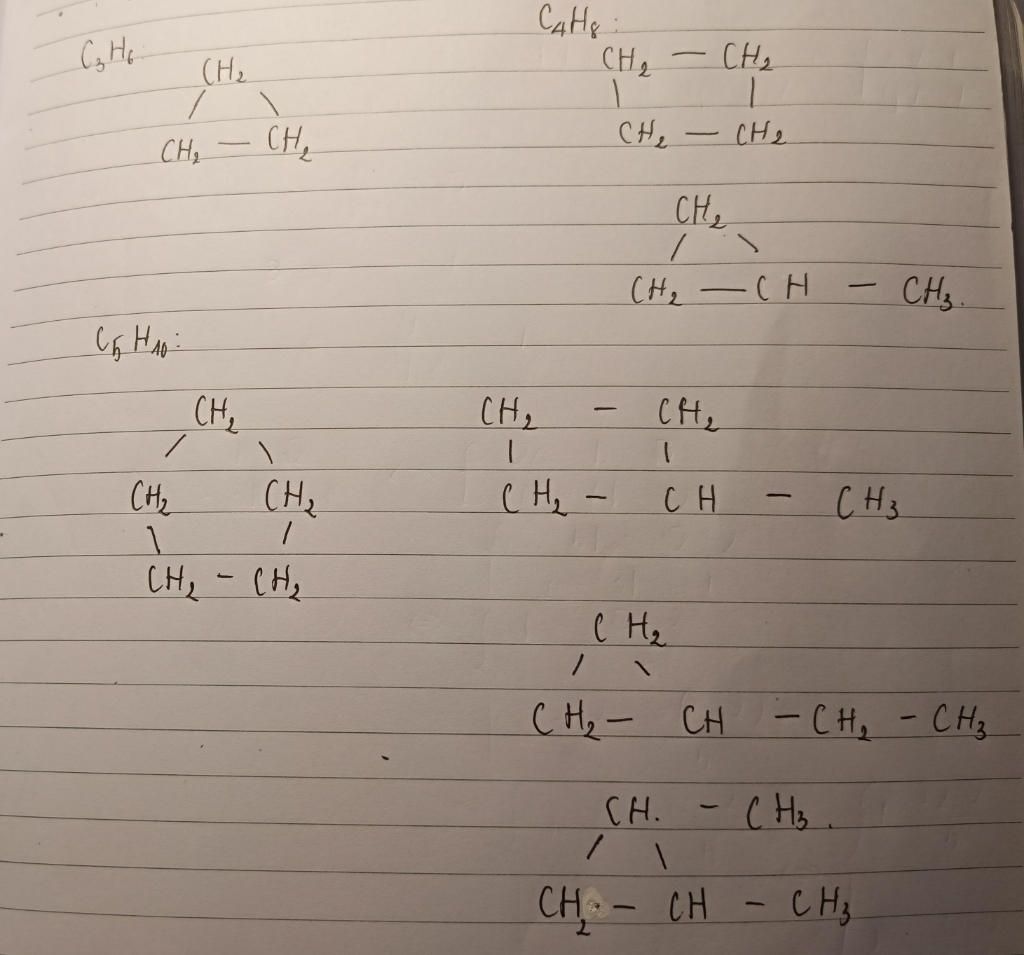 C₃H₆:
CH₂
/ \
CH₂ — CH₂
C₄H₈:
CH₂ — CH₂
| |
CH₂ — CH₂
CH₂
/ \
CH₂ — CH — CH₃.
C₅H₁₀:
CH₂
/ \
CH₂ CH₂
\ /
CH₂ – CH₂
CH₂ – CH₂
| |
CH₂ – CH – CH₃
CH₂
/ \
CH₂ – CH – CH₂ – CH₃
CH. – CH₃.
/ \
CH₂ – CH – CH₃